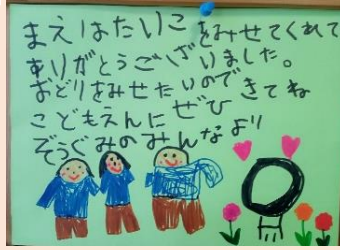 まえはたいこをみせてくれて
ありがとうございました。
おどりをみせたいのできてね
こどもえんにぜひ
ぞうぐみのみんなより